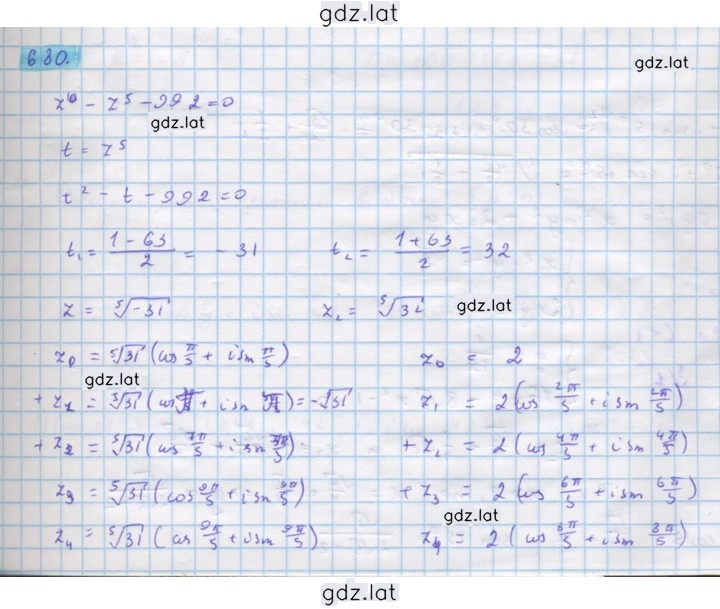 gdz.lat
680.
gdz.lat
z⁶ - z⁵ - 992 = 0
gdz.lat
t = z⁵
t² - t - 992 = 0
t₁ = (1 - 63)/2 = -31    t₂ = (1 + 63)/2 = 32
z = ⁵√-31    z₂ = ⁵√32
gdz.lat
z₀ = ⁵√31 (cos π/5 + i sin π/5)    z₀ = 2
gdz.lat
+ z₁ = ⁵√31 (cos + i sin) = -⁵√31    z₁ = 2 (cos 2π/5 + i sin 2π/5)
+ z₂ = ⁵√31 (cos 7π/5 + i sin 7π/5)    + z₂ = 2 (cos 4π/5 + i sin 4π/5)
z₃ = ⁵√31 (cos 9π/5 + i sin 9π/5)    + z₃ = 2 (cos 6π/5 + i sin 6π/5)
gdz.lat
z₄ = ⁵√31 (cos 9π/5 + i sin 9π/5)    z₄ = 2 (cos 8π/5 + i sin 8π/5)
gdz.lat